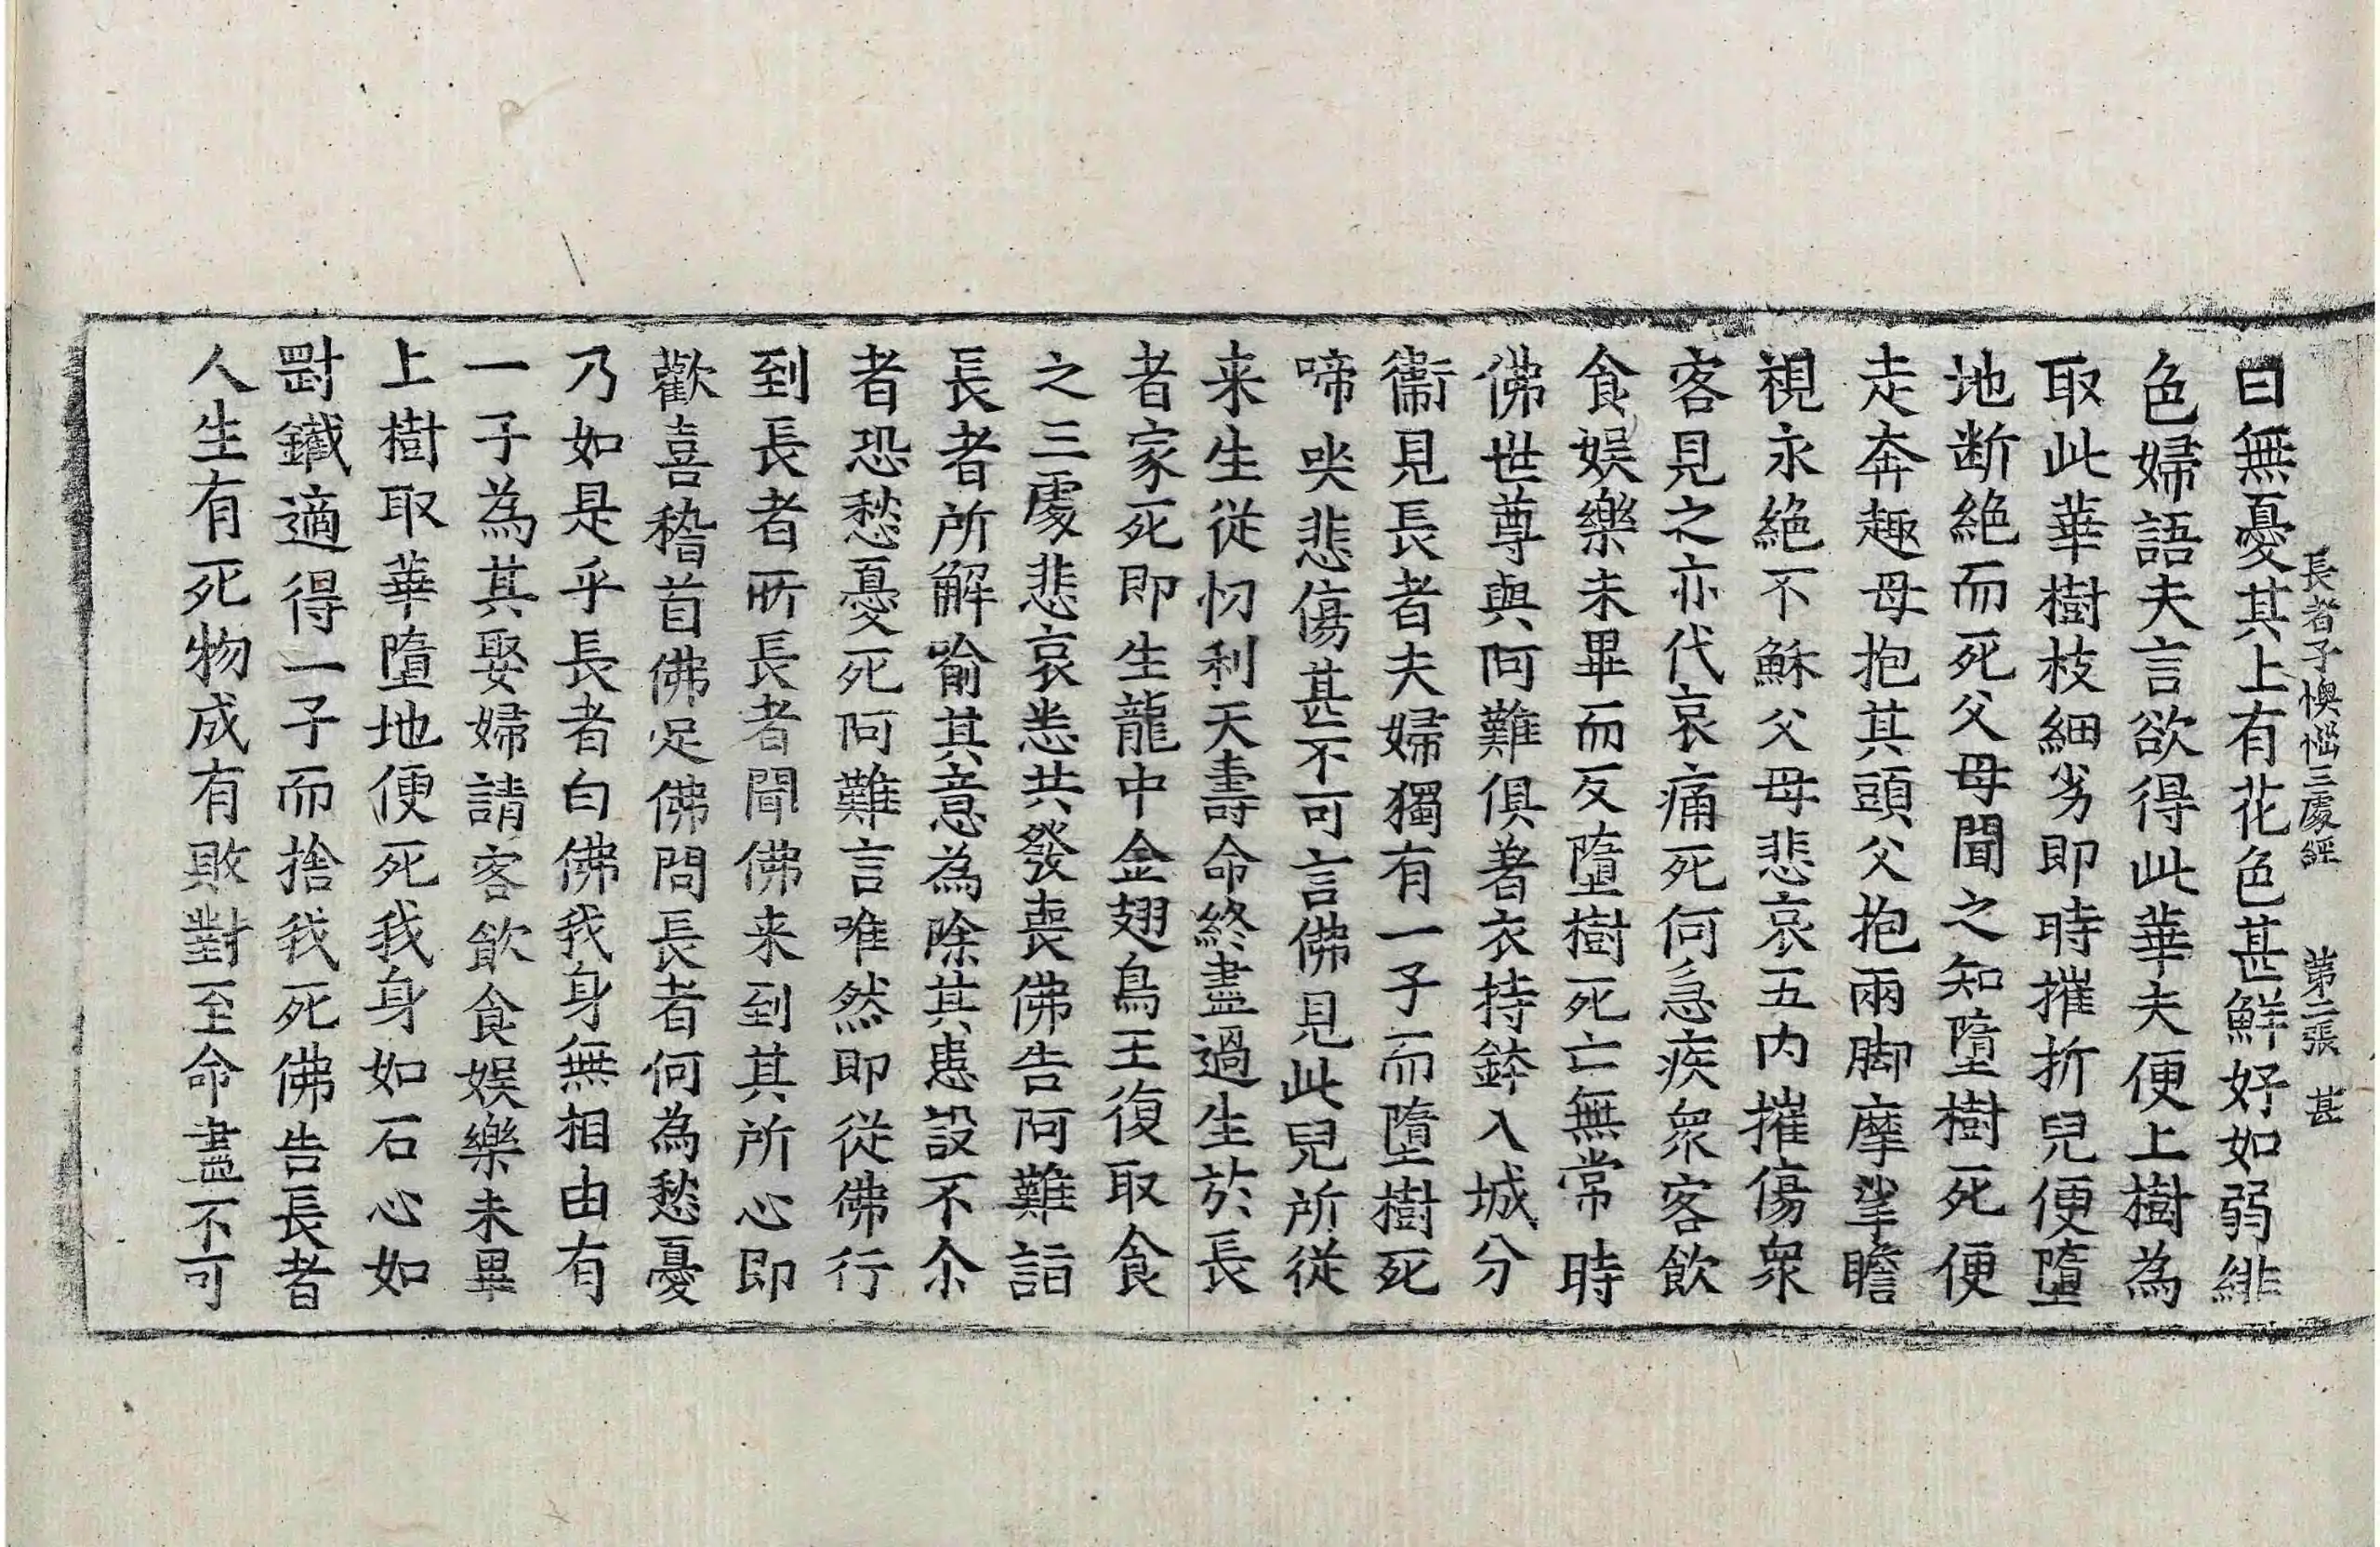 長者子懊惱三處經 第二張 甚
曰無憂其上有花色甚鮮好如弱緋
色婦語夫言欲得此華夫便上樹為
取此華樹枝細劣即時摧折兒便墮
地断絶而死父母聞之知墮樹死便
走奔趣母抱其頭父抱兩脚摩挲瞻
視永絶不穌父母悲哀五内摧傷衆
客見之亦代哀痛死何急疾衆客飲
食娱樂未畢而反墮樹死亡無常時
佛世尊與阿難俱著衣持鉢入城分
衞見長者夫婦獨有一子而墮樹死
啼㗛悲傷甚不可言佛見此兒所從
来生從忉利天壽命終盡過生於長
者家死即生龍中金翅鳥王復取食
之三處悲哀恙共發喪佛告阿難詣
長者所解喻其意為除其患設不尒
者恐愁憂死阿難言唯然即從佛行
到長者所長者聞佛来到其所心即
歡喜稽首佛足佛問長者何為愁憂
乃如是乎長者白佛我身無相由有
一子為其娶婦請客飲食娱樂未畢
上樹取華墮地便死我身如石心如
罰鐵適得一子而捨我死佛告長者
人生有死物成有敗對至命盡不可